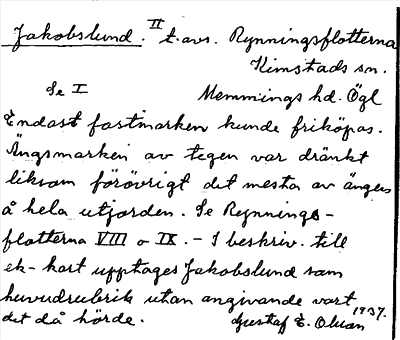 Jakobslund. II t. avs. Rynningsflotterna
Kimstads sn.
Se I Memmings hd. Ögl
Endast fastmarken kunde friköpas.
Ängsmarken av tegen var dränkt
liksom förövrigt det mesta av ängen
å hela utjorden. Se Rynnings-
flotterna VIII o IX. - I beskriv. till
ek-kart upptages Jakobslund som
huvudrubrik utan angivande vart
det då hörde. Gustaf E. Olsson 1937.